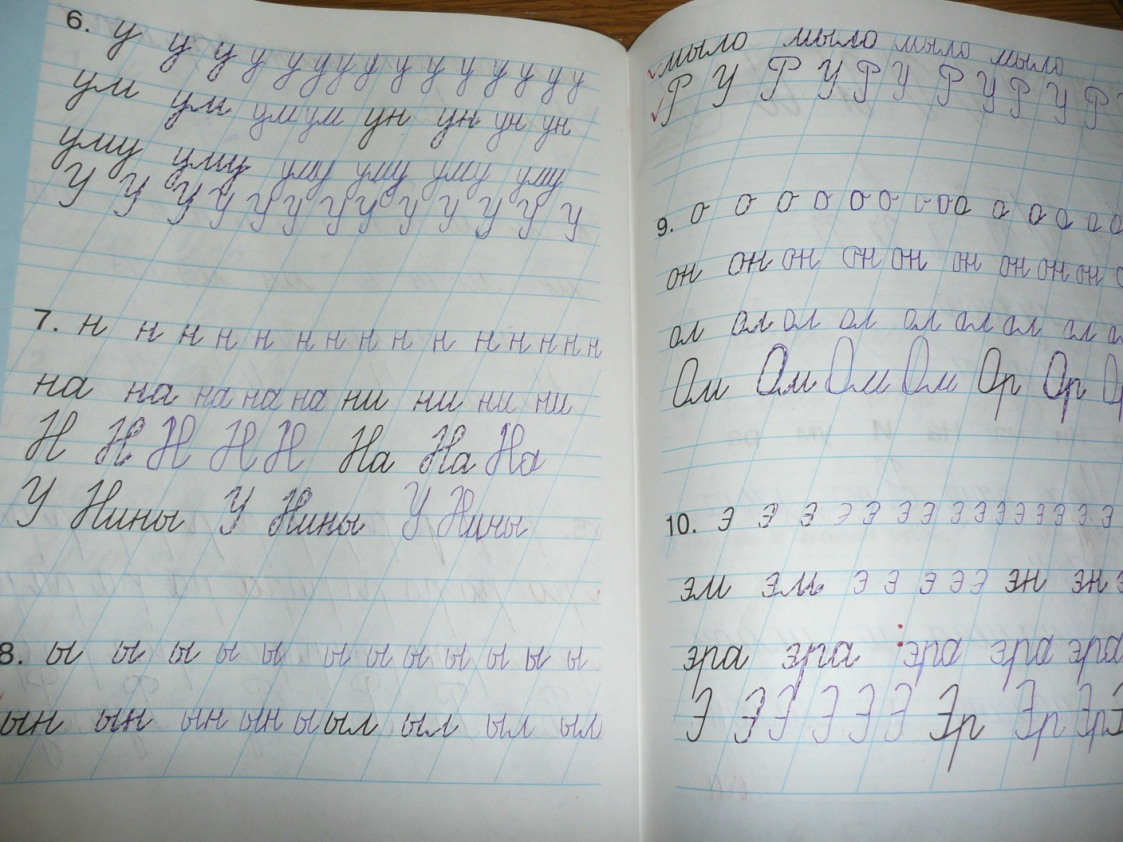 6. у у у у у у у у у у у у у у
ум ум ум ум ун ун ун ун
уму уму уму уму уму уму
У У У У У У У У У У У У У
7. н н н н н н н н н н н н н н н
на на на на на ни ни ни ни
Н Н Н Н Н На На На
У Нины У Нины У Нины
8. ы ы ы ы ы ы ы ы ы ы ы ы
ын ын ын ын ы ыл ыл ыл ыл
мыло мыло мыло мыло
Р У Р У Р У Р У Р У Р
9. о о о о о о о о о о о о о о
он он он он он он он он он
ол ол ол ол ол ол ол ол
Ом Ом Ом Ом Ор Ор
10. э э э э э э э э э э э э э э
эм эм э э э э э эн эн
эра эра эра эра эра
Э Э Э Э Э Э Эр Эр Эр